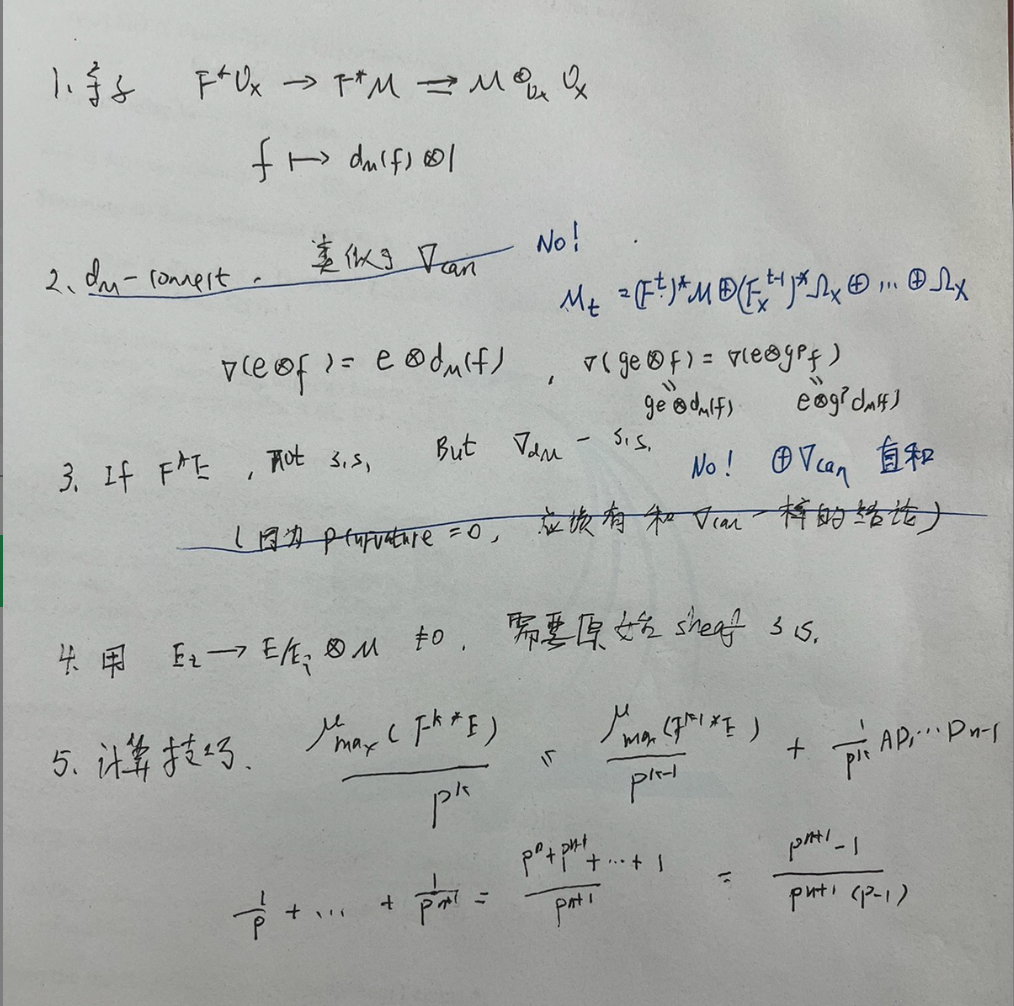 1. 算子 F*O_X → F*M ⇌ M ⊗_{O_X} O_X
f ↦ d_M(f) ⊗ 1
2. d_M - connect. 类似于 ∇_can No!
M_t = (F^t)*M ⊕ (F_X^{t-1})*Ω_X ⊕ ... ⊕ Ω_X
∇(e⊗f) = e ⊗ d_M(f) , ∇(ge⊗f) = ∇(e⊗g^p f)
ge⊗d_M(f) e⊗g^p d_M(f)
3. If F*E , not s.s, But ∇_{d_M} - s.s. No! ⊕∇_can 直和
(因为 p curvature = 0, 应该有和 ∇_can 一样的结论)
4. 用 E_i → E/E_i ⊗ M ≠0. 需要原始 sheaf s.s.
5. 计算技巧. μ_max(F^{k*}E) / p^k \\ μ_max(F^{k-1*}E) / p^{k-1} + 1/p^k AP_1...P_{n-1}
1/p + ... + 1/p^{n+1} = (p^n + p^{n-1} + ... + 1) / p^{n+1} = (p^{n+1} - 1) / (p^{n+1} (p-1))